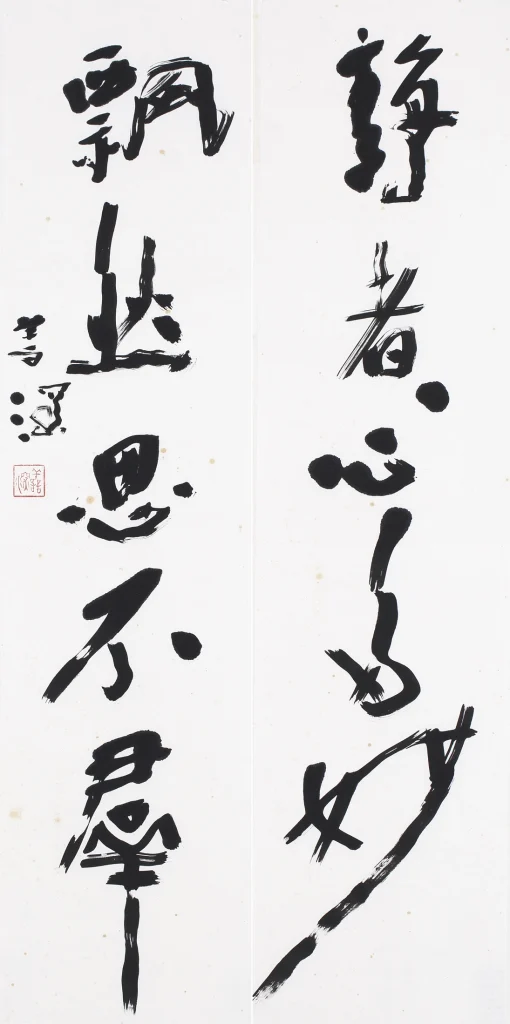 靜者心多妙
飄然思不羣